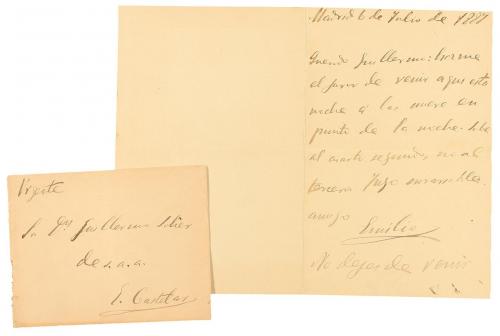 Madrid 6 de Julio de 1887
Querido Guillermo: hazme
el favor de venir aqui esta
noche á las nueve en
punto de la noche. Sube
al cuarto segundo, no al
tercero. Tuyo
amigo
Emilio
No dejes de venir
Urgente
Sr. Dn. Guillermo
de s. a. a.
E. Castelar